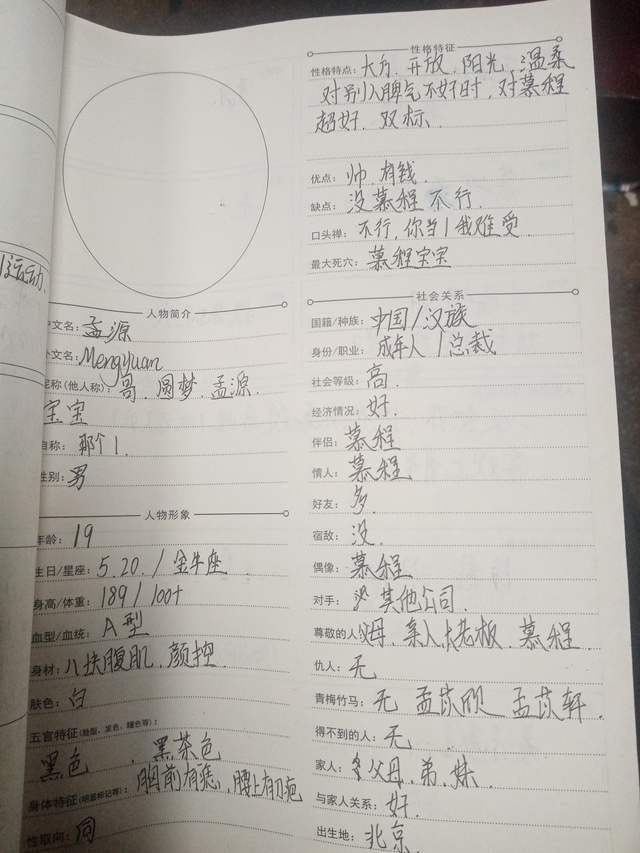 运动
人物简介
文名：孟源
文名：Mengyuan
昵称(他人称)：哥、圆梦、孟源、
宝宝
自称：那个1
性别：男
人物形象
年龄：19
生日/星座：5.20./金牛座
身高/体重：189/100+
血型/血统：A型
身材：八块腹肌，颜控
肤色：白
五官特征(脸型、发色、瞳色等)：
黑色，黑茶色
身体特征(明显标记等)：胸前有痣，腰上有刀疤
性取向：同
性格特征
性格特点：大方、开放、阳光、温柔
对别人脾气不好时，对慕程
超好、双标、
优点：帅、有钱、
缺点：没慕程不行、
口头禅：不行，你当1我难受
最大死穴：慕程宝宝
社会关系
国籍/种族：中国/汉族
身份/职业：成年人/总裁
社会等级：高、
经济情况：好、
伴侣：慕程
情人：慕程
好友：多、
宿敌：没、
偶像：慕程
对手：其他公司、
尊敬的人：母、亲人、老板、慕程、
仇人：无
青梅竹马：无 孟 孟 轩、
得不到的人：无、
家人：父母、弟、妹、
与家人关系：好、
出生地：北京、